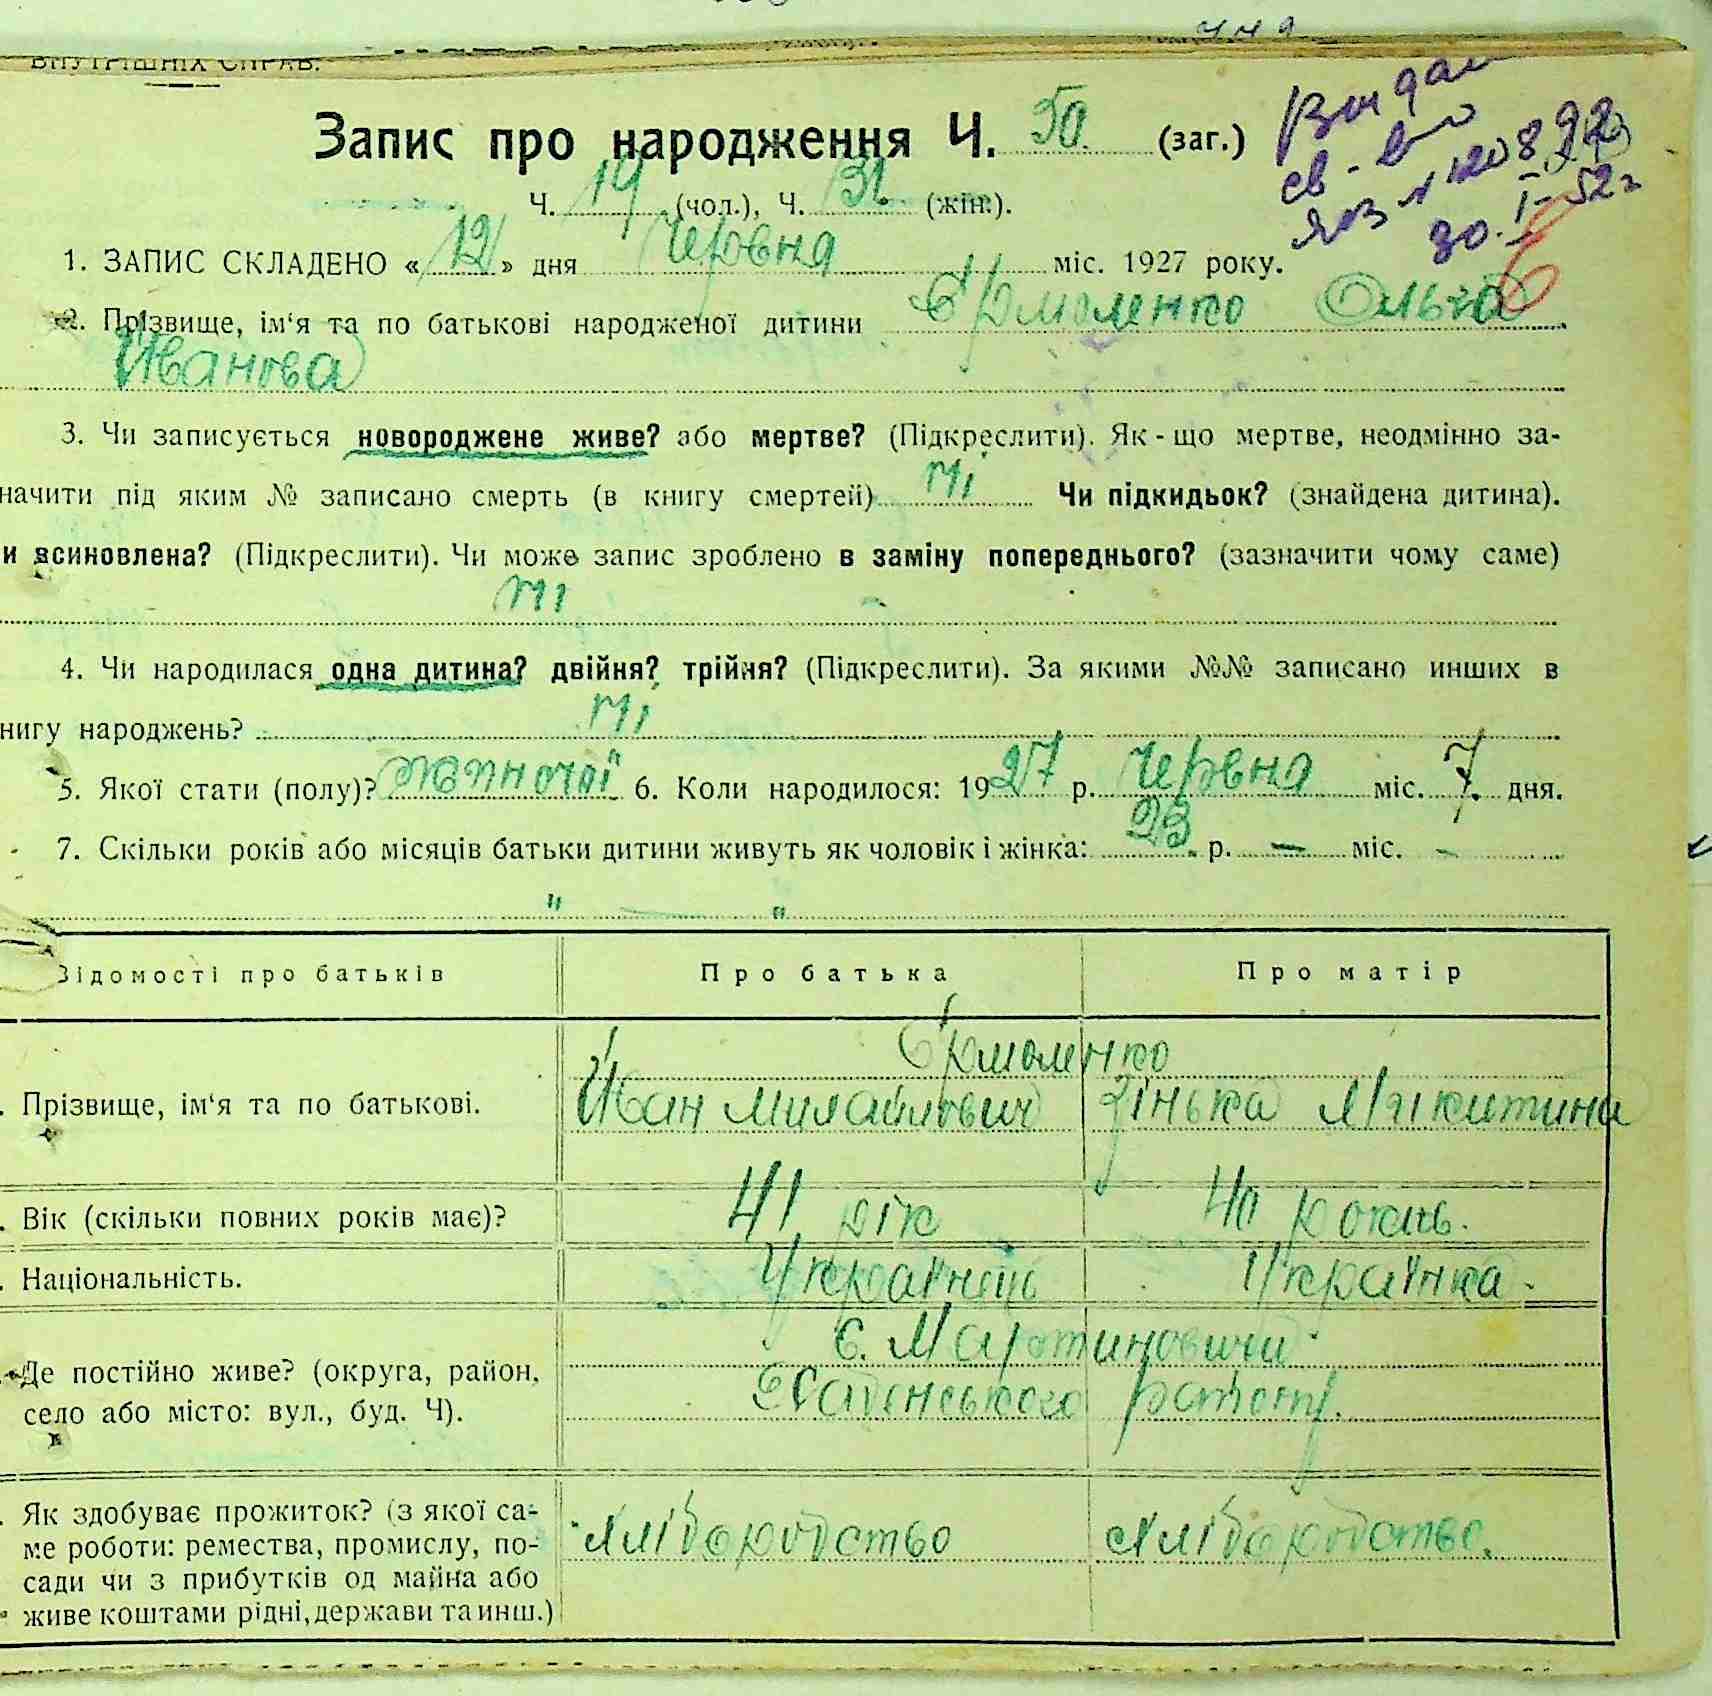 ВНУТРІШНІХ СПРАВ.
Запис про народження Ч. 50. (заг.)
Ч. 19 (чол.), Ч. 31 (жін.).
Видан
св-во
ЯОЗ № 120892
30.I-52г
1. ЗАПИС СКЛАДЕНО «12» дня Червня міс. 1927 року.
2. Прізвище, ім'я та по батькові народженої дитини Єрмоленко Ольга
Иванова
3. Чи записується новороджене живе? або мертве? (Підкреслити). Як-що мертве, неодмінно за-
начити під яким № записано смерть (в книгу смертей) ні Чи підкидьок? (знайдена дитина).
и всиновлена? (Підкреслити). Чи може запис зроблено в заміну попереднього? (зазначити чому саме)
ні
4. Чи народилася одна дитина? двійня? трійня? (Підкреслити). За якими №№ записано инших в
нигу народжень? ні
5. Якої стати (полу)? жіночої 6. Коли народилося: 1927 р. Червня міс. 7 дня.
7. Скільки років або місяців батьки дитини живуть як чоловік і жінка: 23 р. — міс. —
" — "
Відомості про батьків Про батька Про матір
Єрмоленко
. Прізвище, ім'я та по батькові. Иван Михайлович Зінька Микитина
. Вік (скільки повних років має)? 41 рік 40 років.
. Національність. Українець Українка.
с. Мартиновичи
Де постійно живе? (округа, район,
село або місто: вул., буд. Ч). району.
. Як здобуває прожиток? (з якої са-
ме роботи: ремества, промислу, по-
сади чи з прибутків од майна або
живе коштами рідні, держави та инш.)
хліборобство хліборобство.